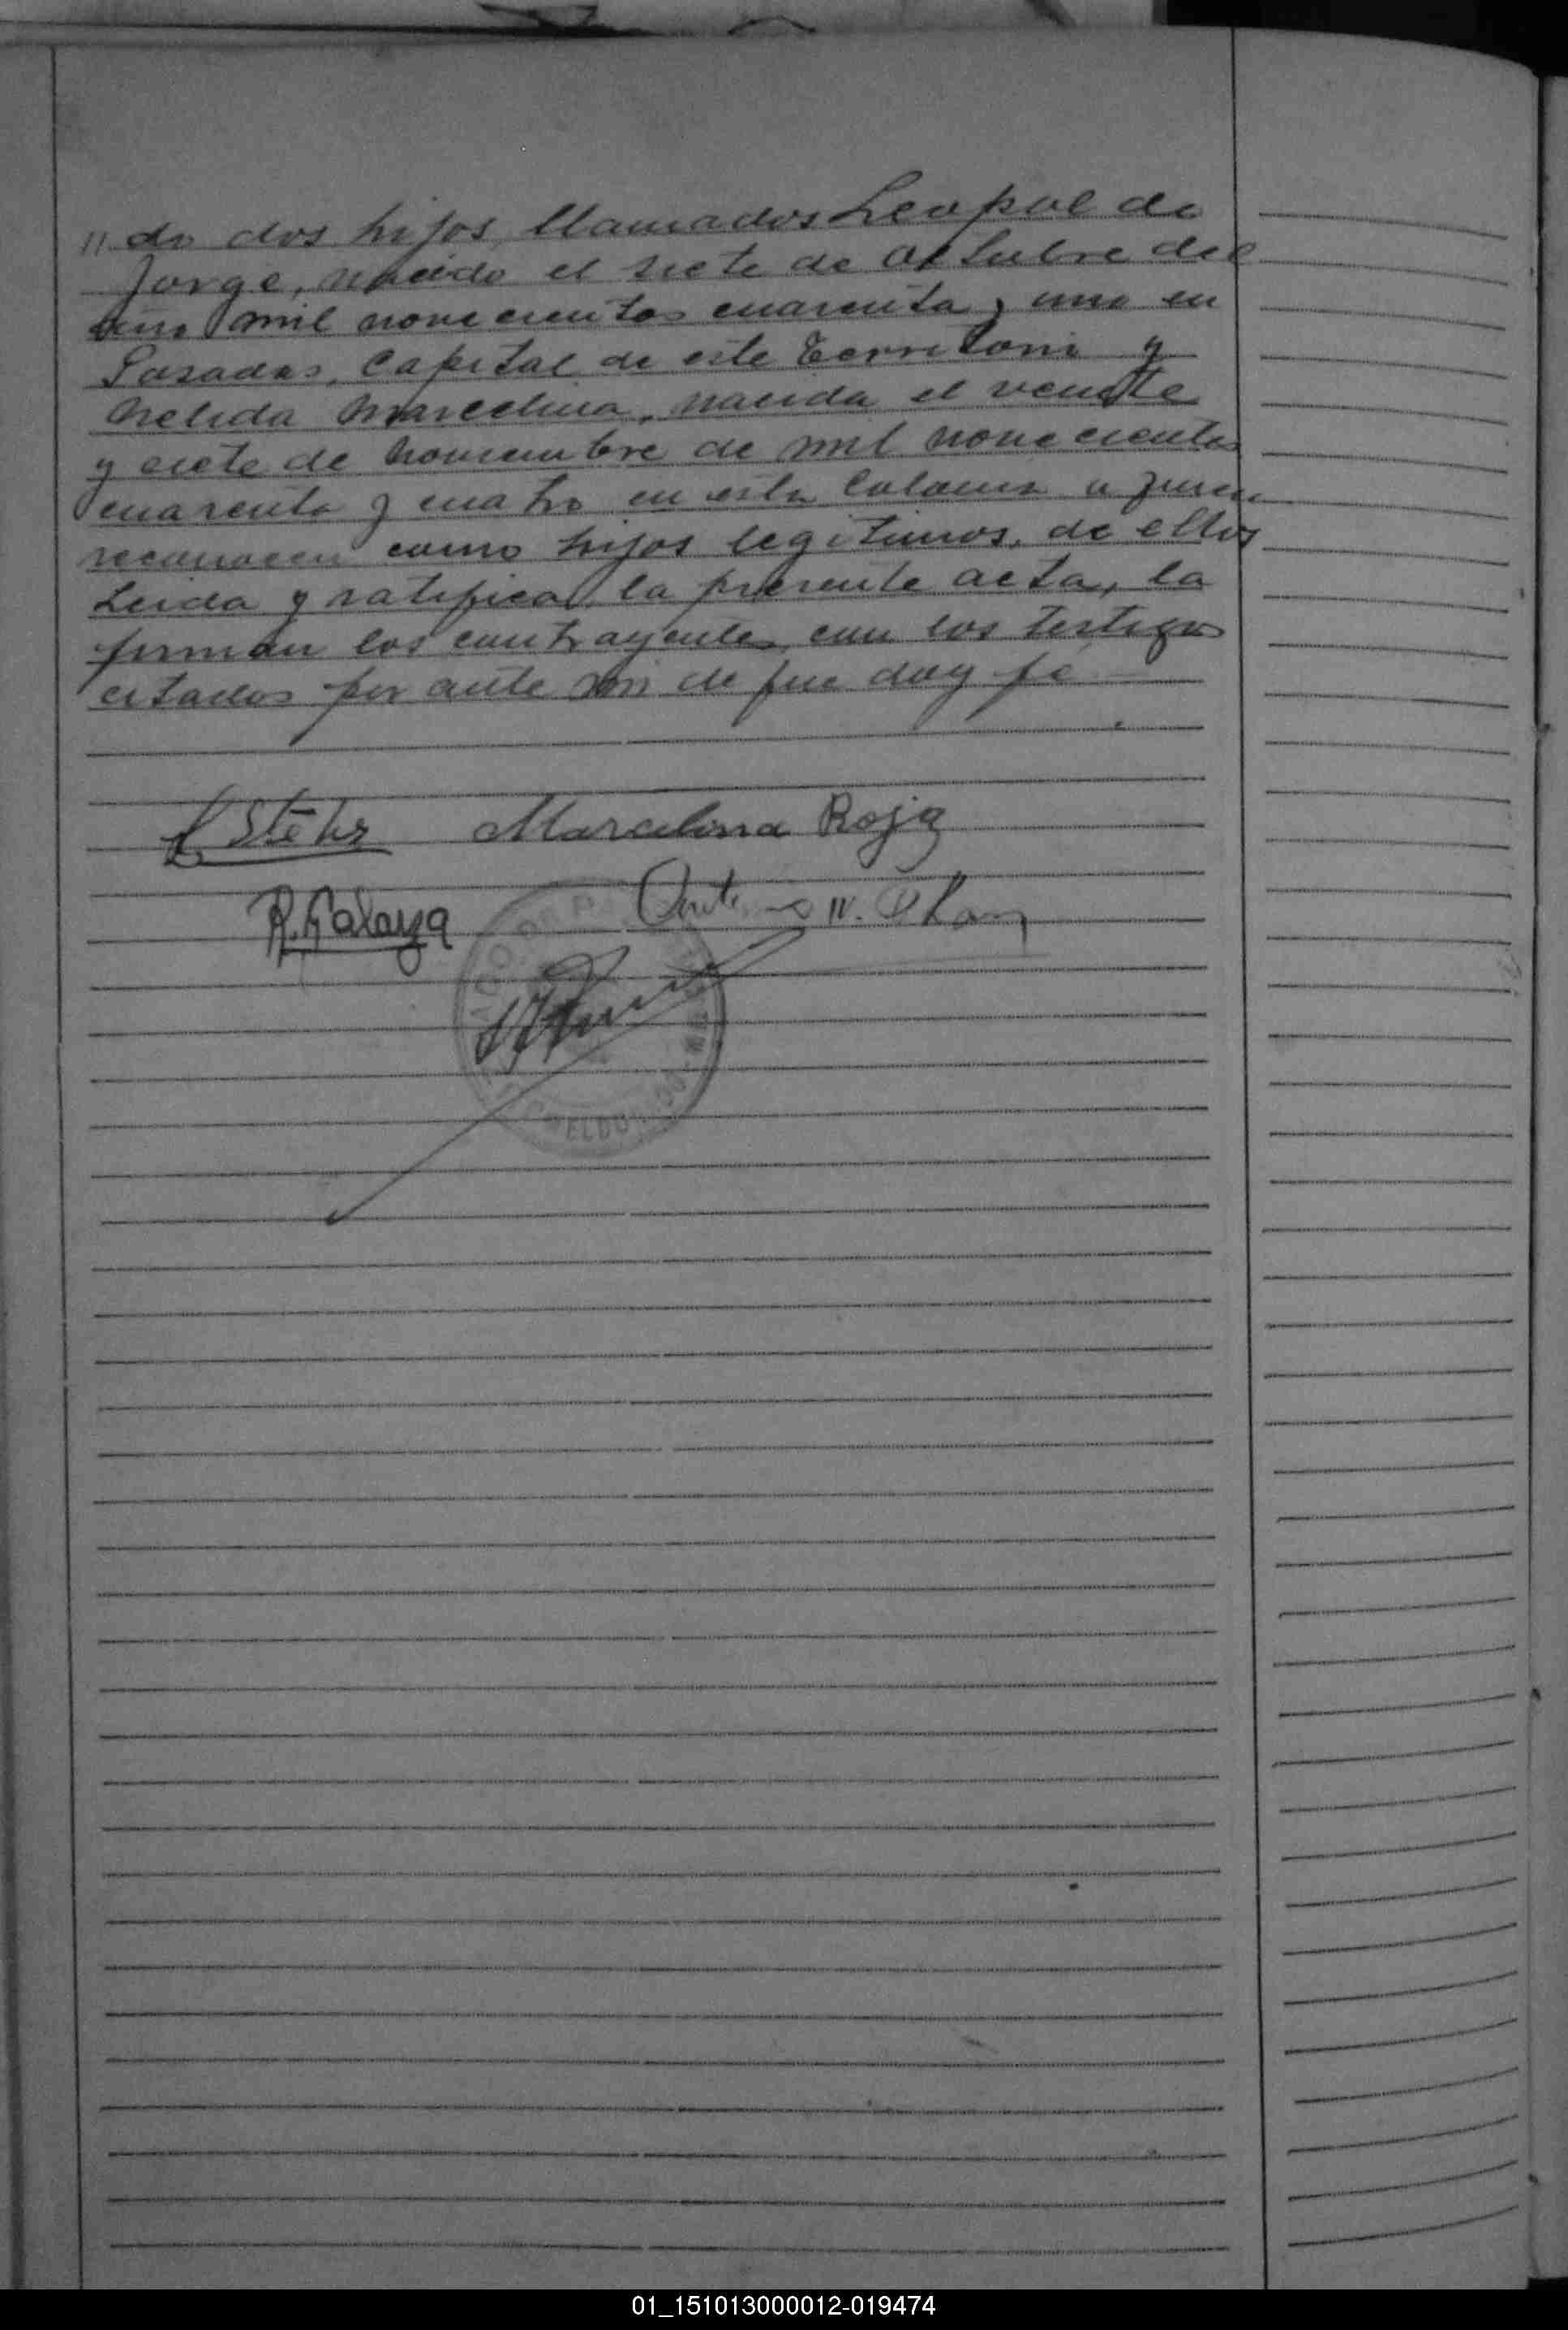 11 do dos hijos, llamados Leopoldo
Jorge, nacido el siete de octubre del
año mil novecientos cuarenta y uno en
Posadas, Capital de este Territorio y
Nelida Marcelina, nacida el veinte
y siete de noviembre de mil novecientos
cuarenta y cuatro en esta Colonia a quien
reconocen como hijos legitimos, de ellos
Leida y ratificada la presente acta, la
firman los contrayentes con los testigos
citados por ante mi de que doy fe
Stehr Marcelina Roja
R. Galarza
ELDO
01_151013000012-019474